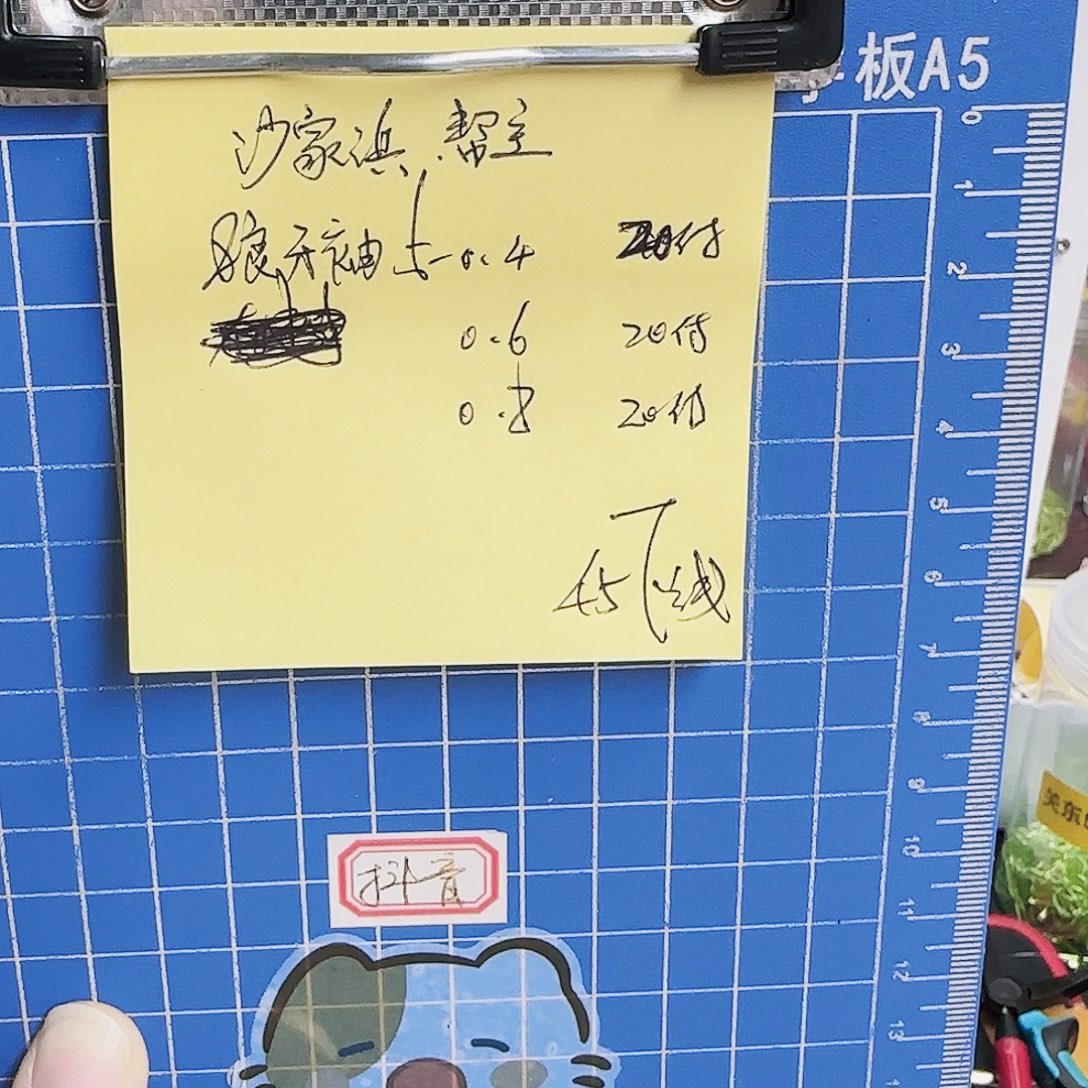 板A5
沙家浜.帮主
狼牙袖5-0.4 20付
0.6 20付
0.8 20付
45下线
抖音
关东
0
1
2
3
4
5
6
7
8
9
10
11
12
13